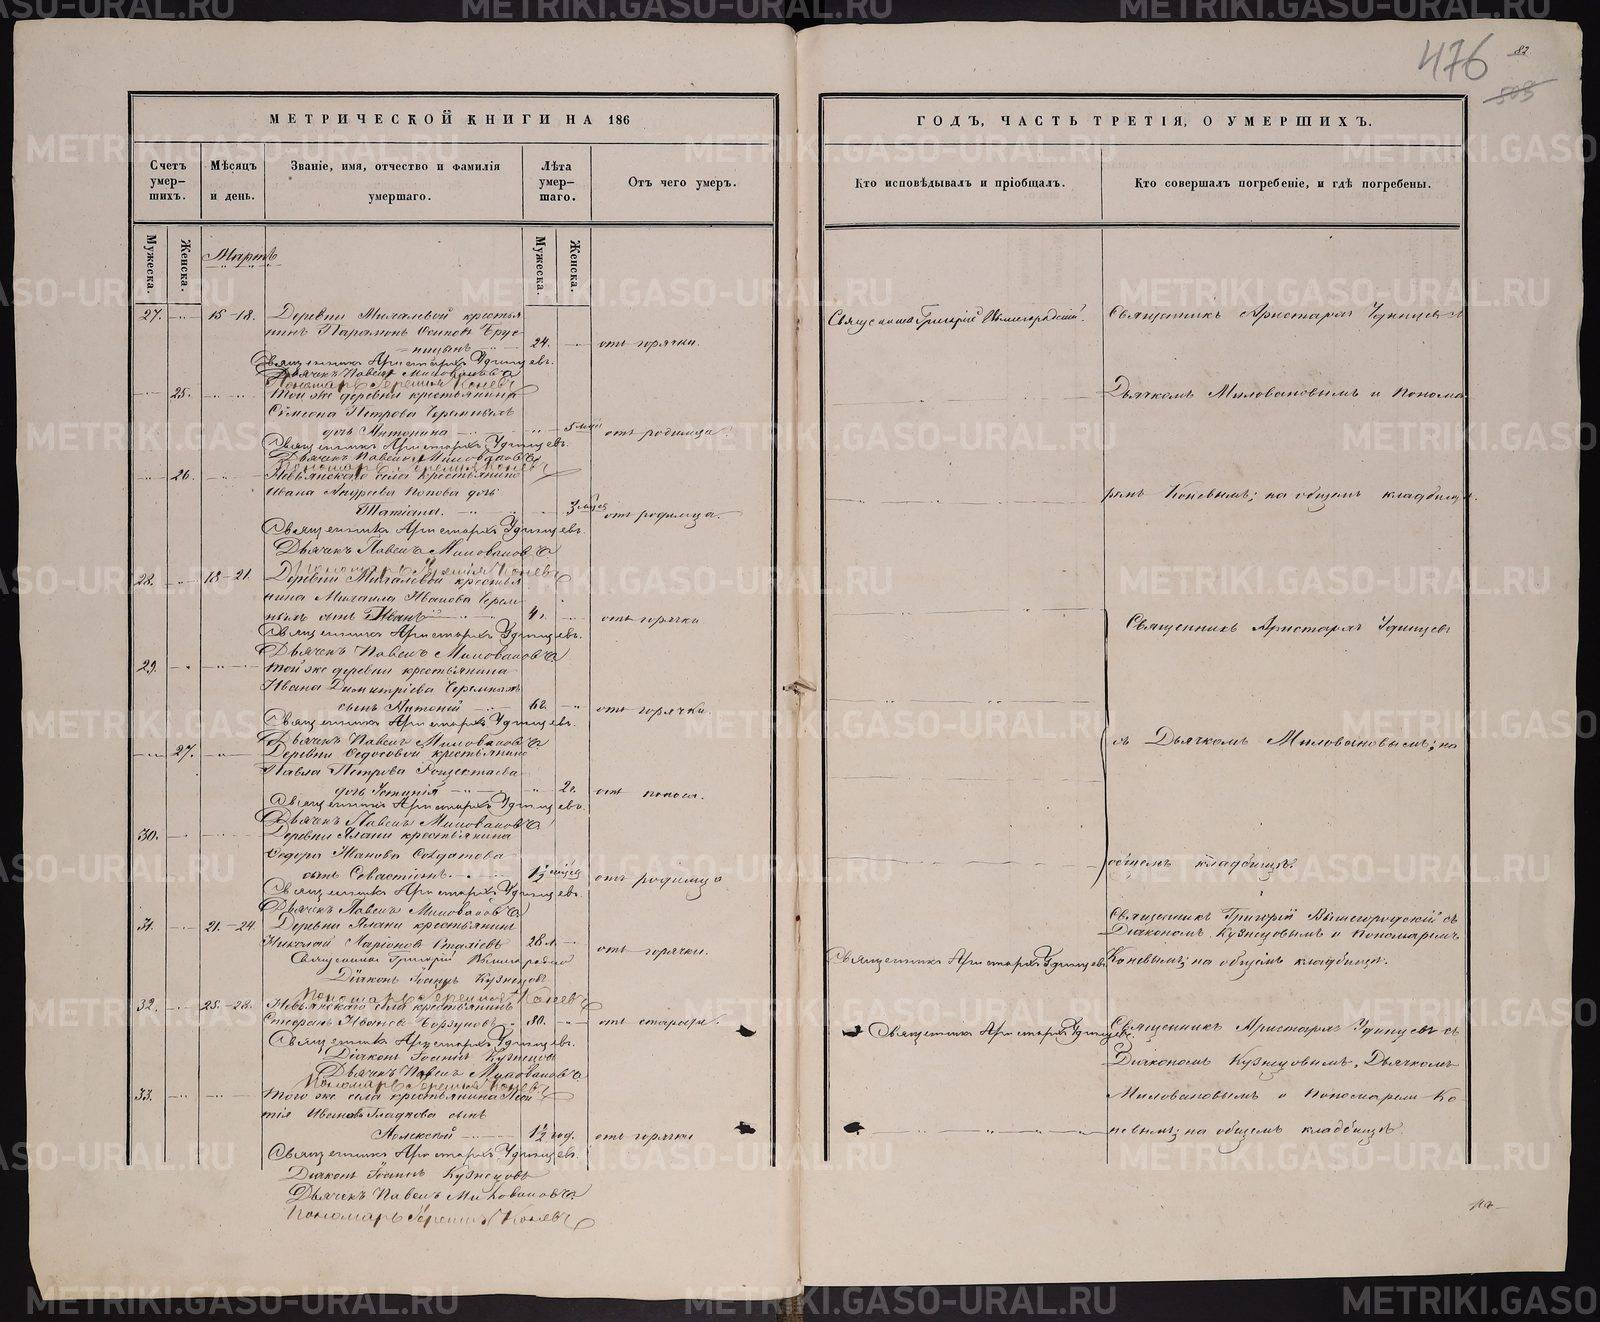 476
82
505
МЕТРИЧЕСКОЙ КНИГИ НА 186
Счетъ умер-шихъ.
Мѣсяцъ и день.
Званіе, имя, отчество и фамилія умершаго.
Лѣта умер-шаго.
Отъ чего умеръ.
Мужеска.
Женска.
Мартъ
Мужеска.
Женска.
27. 15-18. Деревни Михалевой крестья
нинъ Парамонъ Осиповъ Брус
ницынъ 24. отъ горячки.
Священникъ Аристархъ Удинцевъ.
Дьячекъ Павелъ Миловановъ
Пономарь Иеремия Коневъ
25. Той же деревни крестьянина
Симеона Петрова Черемныхъ
дочь Антонина 5 мѣс отъ родимца.
Священникъ Аристархъ Удинцевъ.
Дьячекъ Павелъ Миловановъ
Пономарь Иеремия Коневъ
26. Невьянскаго села крестьянина
Ивана Андреева Попова дочь
Татіана. 3 мѣсяц отъ родимца.
Священникъ Аристархъ Удинцевъ.
Дьячекъ Павелъ Миловановъ
Пономарь Иеремія Коневъ
28. 18-21. Деревни Михалевой крестья
нина Михаила Иванова Черем
ныхъ сынъ Иванъ 4. отъ горячки
Священникъ Аристархъ Удинцевъ.
Дьячекъ Павелъ Миловановъ
29. Той же деревни крестьянина
Ивана Димитріева Черемныхъ
сынъ Антоній отъ горячки.
Священникъ Аристархъ Удинцевъ.
Дьячекъ Павелъ Миловановъ
27. Деревни Федосовой крестьянина
Павла Петрова
дочь Устинія 2. отъ поноса.
Священникъ Аристархъ Удинцевъ.
Дьячекъ Павелъ Миловановъ
30. Деревни Ялани крестьянина
Федора Иванова Солдатова
сынъ Севастіанъ. 1½ мѣсяц отъ родимца
Священникъ Аристархъ Удинцевъ.
Дьячекъ Павелъ Миловановъ
31. 21.-24. Деревни Ялани крестьянинъ
Николай Ларіоновъ 28 л. отъ горячки.
Священникъ Григорій
Діаконъ Іоаннъ Кузнецовъ
Пономарь Иеремия Коневъ
32. 25.-28. Невьянскаго села крестьянинъ
Стефанъ Ивановъ 80. отъ старости.
Священникъ Аристархъ Удинцевъ.
Діаконъ Іоаннъ Кузнецовъ
Дьячекъ Павелъ Миловановъ
Пономарь Иеремия Коневъ
33. Того же села крестьянина
Иванова Гладкова сынъ
1½ год. отъ горячки
Священникъ Аристархъ Удинцевъ.
Діаконъ Іоаннъ Кузнецовъ
Дьячекъ Павелъ Миловановъ
Пономарь Иеремия Коневъ
ГОДЪ, ЧАСТЬ ТРЕТІЯ, О УМЕРШИХЪ.
Кто исповѣдывалъ и пріобщалъ.
Кто совершалъ погребеніе, и гдѣ погребены.
Священникъ Григорій Вышегородскій.
Священникъ Аристархъ Удинцевъ
Дьячкомъ Миловановымъ и понома
ремъ Коневымъ; на общемъ кладбищѣ.
Священникъ Аристархъ Удинцевъ
съ Дьячкомъ Миловановымъ; на
общемъ кладбищѣ.
Священникъ Григорій Вышегородскій съ
Діакономъ Кузнецовымъ и Пономаремъ
Священникъ Аристархъ Удинцевъ
Коневымъ; на общемъ кладбищѣ.
Священникъ Аристархъ Удинцевъ
Священникъ Аристархъ Удинцевъ съ
Діакономъ Кузнецовымъ, Дьячкомъ
Миловановымъ и Пономаремъ Ко
невымъ; на общемъ кладбищѣ.
METRIKI.GASO-URAL.RU